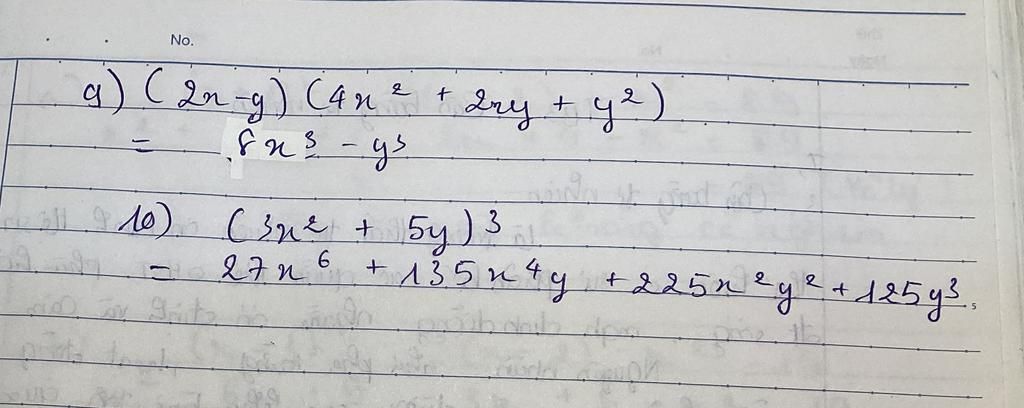 No.
9) (2x - y) (4x² + 2xy + y²)
= 8x³ - y³
10) (3x² + 5y)³
= 27x⁶ + 135x⁴y + 225x²y² + 125y³.